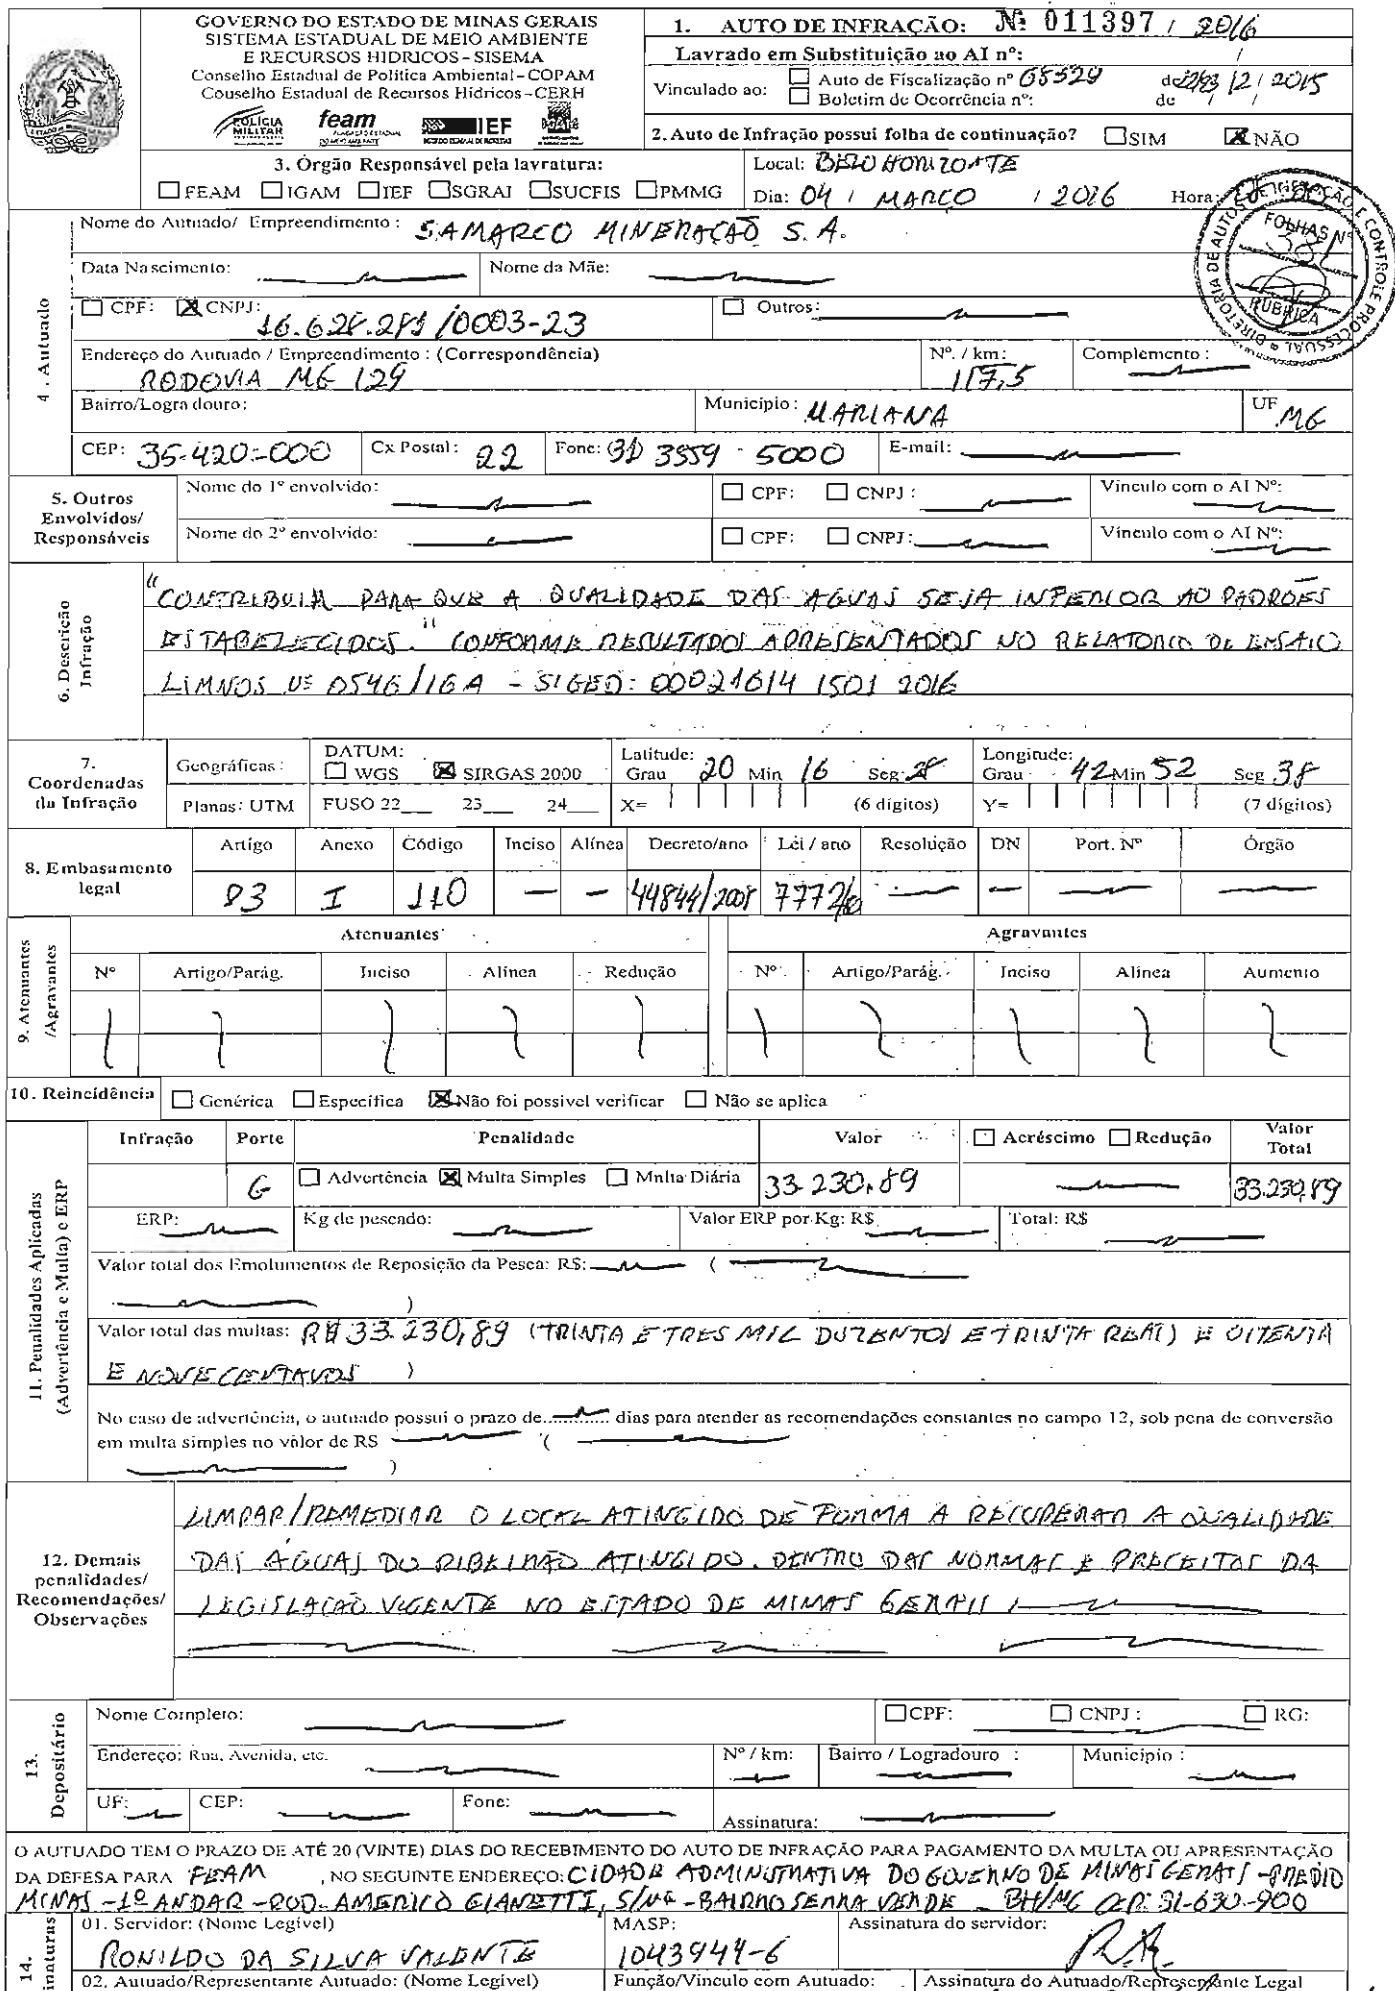 GOVERNO DO ESTADO DE MINAS GERAIS
SISTEMA ESTADUAL DE MEIO AMBIENTE
E RECURSOS HIDRICOS - SISEMA
Conselho Estadual de Política Ambiental - COPAM
Conselho Estadual de Recursos Hídricos - CERH
POLÍCIA MILITAR feam IEF
1. AUTO DE INFRAÇÃO: Nº 011397 / 2016
Lavrado em Substituição ao AI nº: /
Vinculado ao: Auto de Fiscalização nº 68529 de 22/23 / 12 / 2015
Boletim de Ocorrência nº: de / /
2. Auto de Infração possui folha de continuação? SIM X NÃO
3. Órgão Responsável pela lavratura:
FEAM IGAM IEF SGRAI SUCFIS PMMG
Local: BELO HORIZONTE
Dia: 04 / MARÇO / 2016 Hora:
DIRETORIA DE AUTOS DE INFRAÇÃO E CONTROLE PROCESSUAL
FOLHAS Nº
RUBRICA
4. Autuado
Nome do Autuado/ Empreendimento: SAMARCO MINERAÇÃO S.A.
Data Nascimento: Nome da Mãe:
CPF: X CNPJ: 16.628.281/0003-23 Outros:
Endereço do Autuado / Empreendimento: (Correspondência) Nº. / km: Complemento:
RODOVIA MG 129 117,5
Bairro/Logradouro: Município: MARIANA UF MG
CEP: 35-420-000 Cx Postal: 22 Fone: (31) 3559 - 5000 E-mail:
5. Outros Envolvidos/ Responsáveis
Nome do 1º envolvido: CPF: CNPJ: Vínculo com o AI Nº:
Nome do 2º envolvido: CPF: CNPJ: Vínculo com o AI Nº:
6. Descrição Infração
"CONTRIBUIR PARA QUE A QUALIDADE DAS AGUAS SEJA INFERIOR AO PADRÕES
ESTABELECIDOS." CONFORME RESULTADOS APRESENTADOS NO RELATORIO DE ENSAIO
LIMNOS Nº 0546/16A - SIGED: 00021614 1501 2016
7. Coordenadas da Infração
Geográficas: DATUM: WGS X SIRGAS 2000 Latitude: Grau 20 Min 16 Seg 28 Longitude: Grau 42 Min 52 Seg 38
Planas: UTM FUSO 22 23 24 X= (6 dígitos) Y= (7 dígitos)
8. Embasamento legal
Artigo Anexo Código Inciso Alínea Decreto/ano Lei / ano Resolução DN Port. Nº Órgão
83 I 110 - - 44844/2008 7772/80 - - - -
9. Atenuantes /Agravantes
Atenuantes Agravantes
Nº Artigo/Parág. Inciso Alínea Redução Nº Artigo/Parág. Inciso Alínea Aumento
10. Reincidência Genérica Específica X Não foi possivel verificar Não se aplica
11. Penalidades Aplicadas (Advertência e Multa) e ERP
Infração Porte Penalidade Valor Acréscimo Redução Valor Total
G Advertência X Multa Simples Multa Diária 33.230,89 33.230,89
ERP: Kg de pescado: Valor ERP por Kg: R$ Total: R$
Valor total dos Emolumentos de Reposição da Pesca: R$: (
)
Valor total das multas: R$ 33.230,89 (TRINTA E TRES MIL DUZENTOS E TRINTA REAIS E OITENTA
E NOVE CENTAVOS )
No caso de advertência, o autuado possui o prazo de dias para atender as recomendações constantes no campo 12, sob pena de conversão
em multa simples no valor de R$ (
)
12. Demais penalidades/ Recomendações/ Observações
LIMPAR/REMEDIAR O LOCAL ATINGIDO DE FORMA A RECUPERAR A QUALIDADE
DAS ÁGUAS DO RIBEIRÃO ATINGIDO. DENTRO DAS NORMAS E PRECEITOS DA
LEGISLAÇÃO VIGENTE NO ESTADO DE MINAS GERAIS
13. Depositário
Nome Completo: CPF: CNPJ: RG:
Endereço: Rua, Avenida, etc. Nº / km: Bairro / Logradouro: Município:
UF: CEP: Fone: Assinatura:
O AUTUADO TEM O PRAZO DE ATÉ 20 (VINTE) DIAS DO RECEBIMENTO DO AUTO DE INFRAÇÃO PARA PAGAMENTO DA MULTA OU APRESENTAÇÃO
DA DEFESA PARA FEAM, NO SEGUINTE ENDEREÇO: CIDADE ADMINISTRATIVA DO GOVERNO DE MINAS GERAIS - PREDIO
MINAS - 1º ANDAR - ROD. AMERICO GIANETTI, S/Nº - BAIRRO SERRA VERDE - BH/MG CEP: 31-630-900
14. inaturas
01. Servidor: (Nome Legível) MASP: Assinatura do servidor:
RONILDO DA SILVA VALENTE 1043944-6
02. Autuado/Representante Autuado: (Nome Legível) Função/Vínculo com Autuado: Assinatura do Autuado/Representante Legal